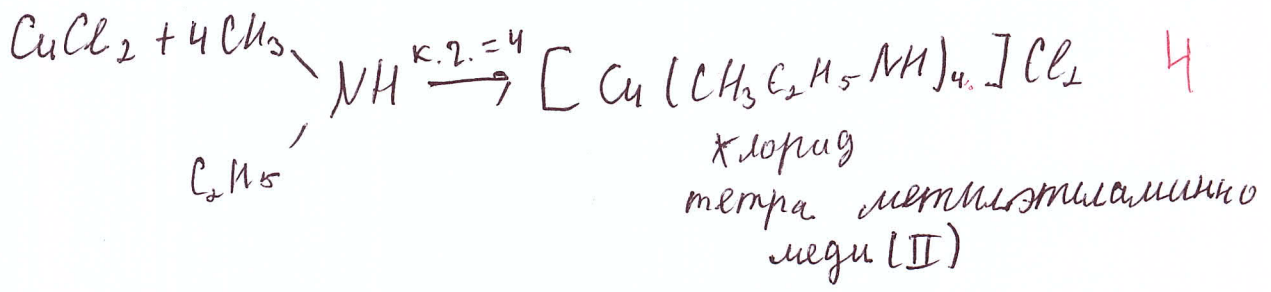 CuCl₂ + 4CH₃
NH к.ч. = 4 → [Cu(CH₃C₂H₅NH)₄]Cl₂ 4
C₂H₅
хлорид
тетра метилэтиламинно
меди (II)